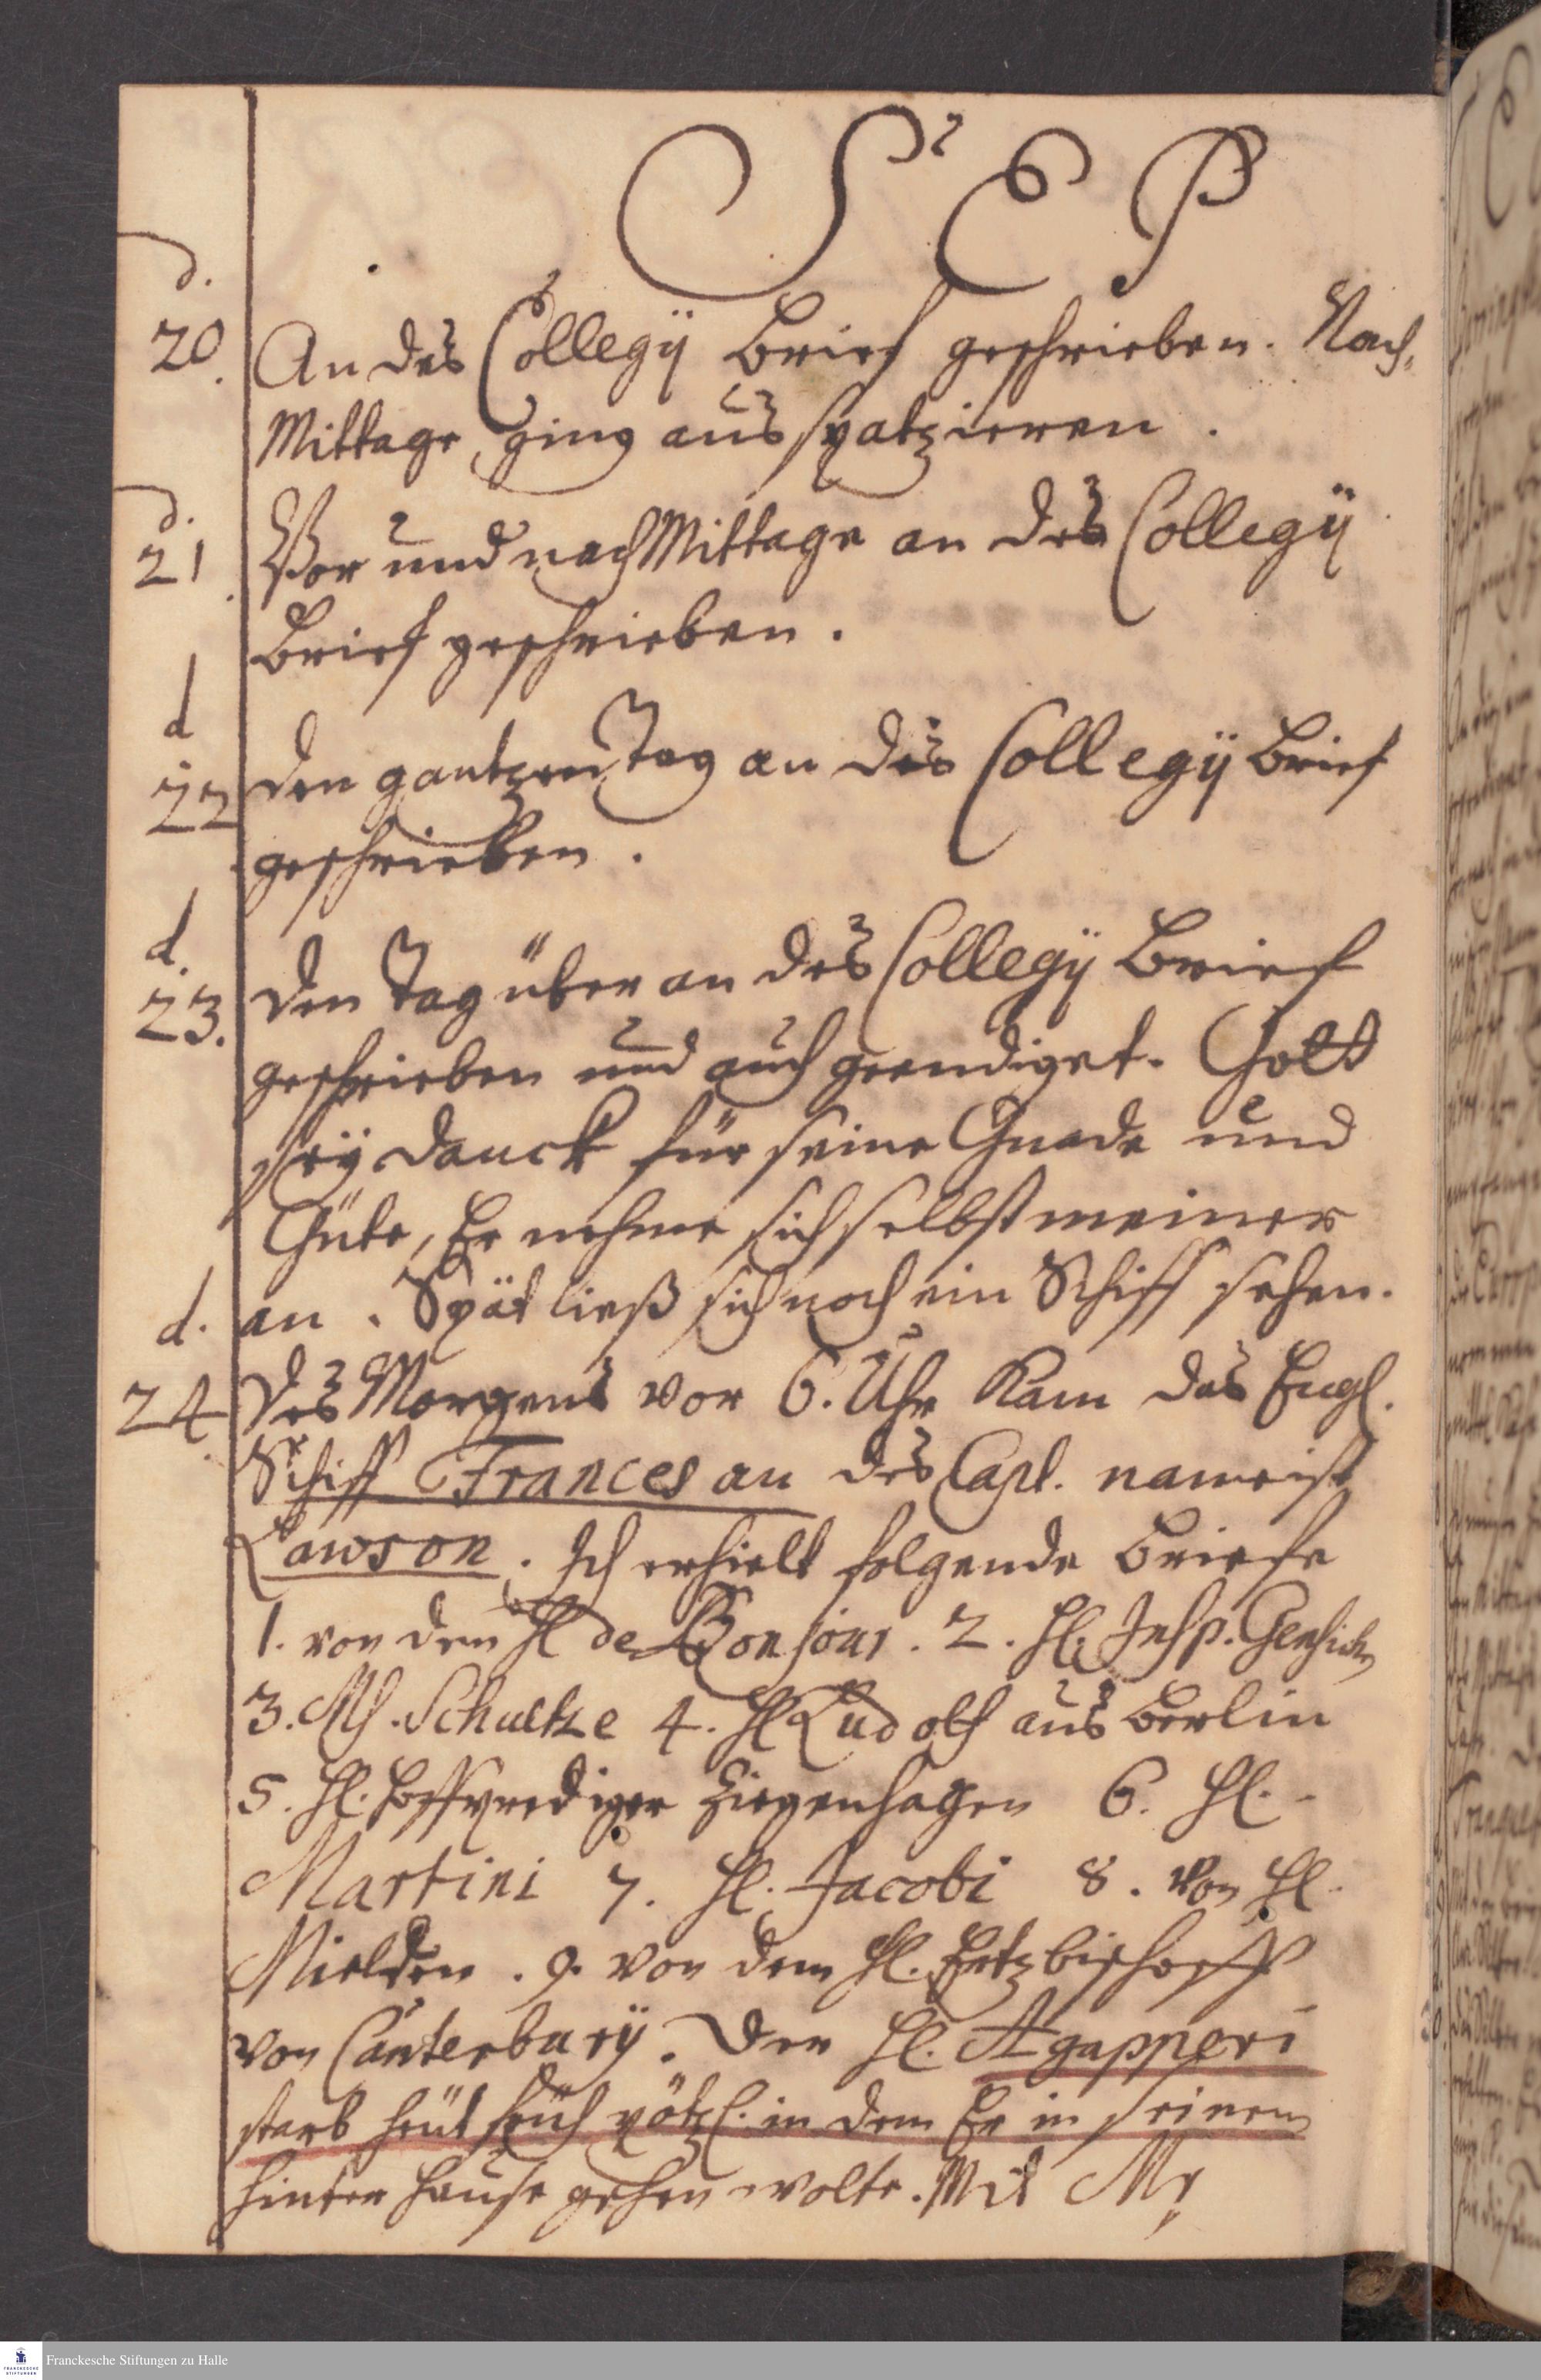 SEP
d.
20. An des Collegÿ Brief geschrieben. Nach,
Mittage ging aus spatzieren.
d.
21. Vor und nach Mittage an des Collegÿ
Brief geschrieben.
d
22. den gantzen Tag an des Collegÿ Brief
geschrieben.
d.
23. den Tag über an des Collegÿ Brief
geschrieben und auch geendiget. Gott
seÿ danck für seine Gnade und
Güte, Er nehme sich selbst meiner
an. Spät ließ sich noch ein Schiff sehen.
d.
24. des Morgens vor 6. Uhr kam das Engl.
Schiff Frances an des Capt. name ist
Lawson. Ich erhielt folgende Briefe
1. von dem Hl de Bonjour. 2. Hl. Insp.
3. Schultze 4. Hl Ludolf aus Berlin
5. Hl. Hoffprediger Ziegenhagen 6. Hl.
Martini 7. Hl. Jacobi 8. von Hl.
Mielden. 9. von dem Hl. Ertzbischoff
von Canterburÿ. Der Hl. Agapperi
starb heüt früh plötzl. in dem Er in seinem
hinter Hause gehen wolte. Mit Mr
Franckesche Stiftungen zu Halle
FRANCKESCHE
STIFTUNGEN